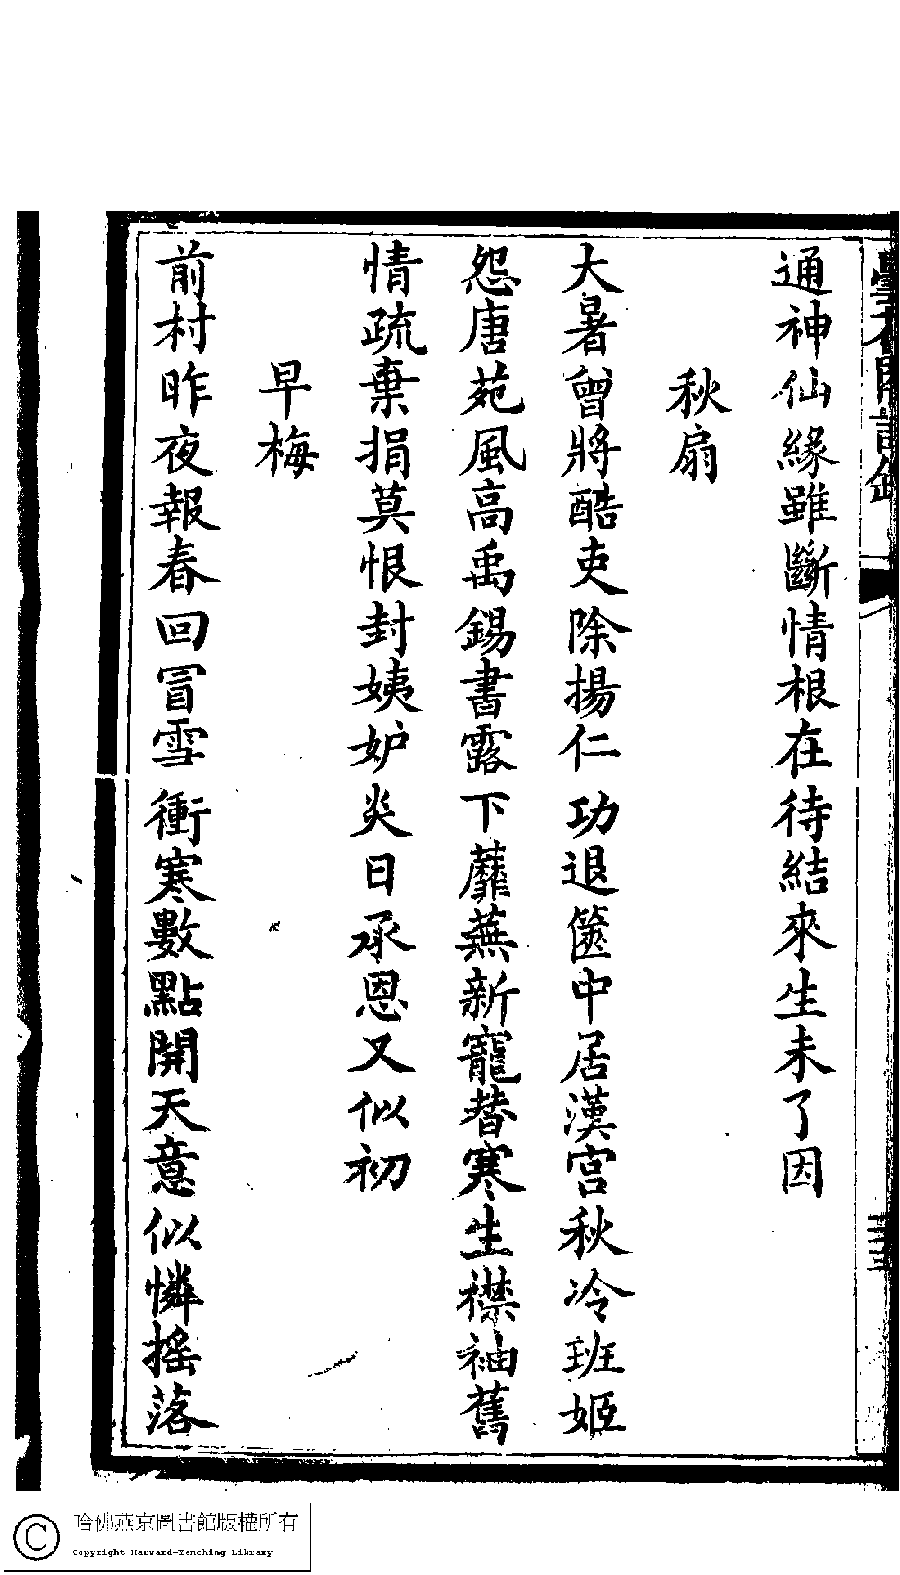 通神仙緣雖斷情根在待結來生未了因
秋扇
大暑曾將酷吏除揚仁功退篋中居漢宮秋冷班姬
怨唐苑風高禹錫書露下蘼蕪新寵替寒生襟袖舊
情疏棄捐莫恨封姨妒炎日承恩又似初
早梅
前村昨夜報春回冒雪衝寒數點開天意似憐搖落
哈佛燕京圖書館版權所有
Copyright Harvard-Yenching Library